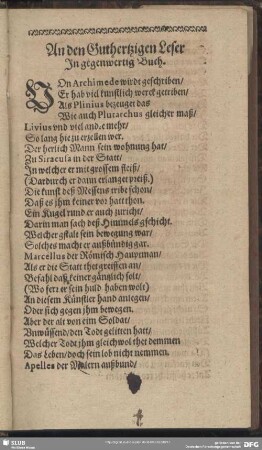 An den Guthertzigen Leser
In gegenwertig Buch.
VOn Archimede wirdt geschriben/
Er hab viel kunstlich werck getriben/
Als Plinius bezeuget das
Wie auch Plutarchus gleicher maß/
Livius vnd viel andre mehr/
So lang hie zu erzelen wer.
Der herlich Mann sein wohnung hat/
Zu Siracusa in der Statt/
In welcher er mit grossem fleiß/
(Dardurch er dann erlanget preiß.)
Die kunst deß Messens triebe schon/
Daß es jhm keiner vor hatt thon.
Ein Kugel rund er auch zuricht/
Darin man sach deß Himmels gschicht.
Welcher gstalt sein bewegung war/
Solches macht er außbündig gar.
Marcellus der Römisch Hauptman/
Als er die Statt thet greiffen an/
Befahl daß keiner gäntzlich solt/
(Wo fern er sein huld haben wolt)
An diesem Künstler hand anlegen/
Oder sich gegen jhm bewegen.
Aber der alt von eim Soldat/
Vnwüssend/den Todt gelitten hatt/
Welcher Todt jhm gleichwol thet nemmen
Das Leben/doch sein lob nicht nemmen.
Apelles der Malern außbund/
SLUB